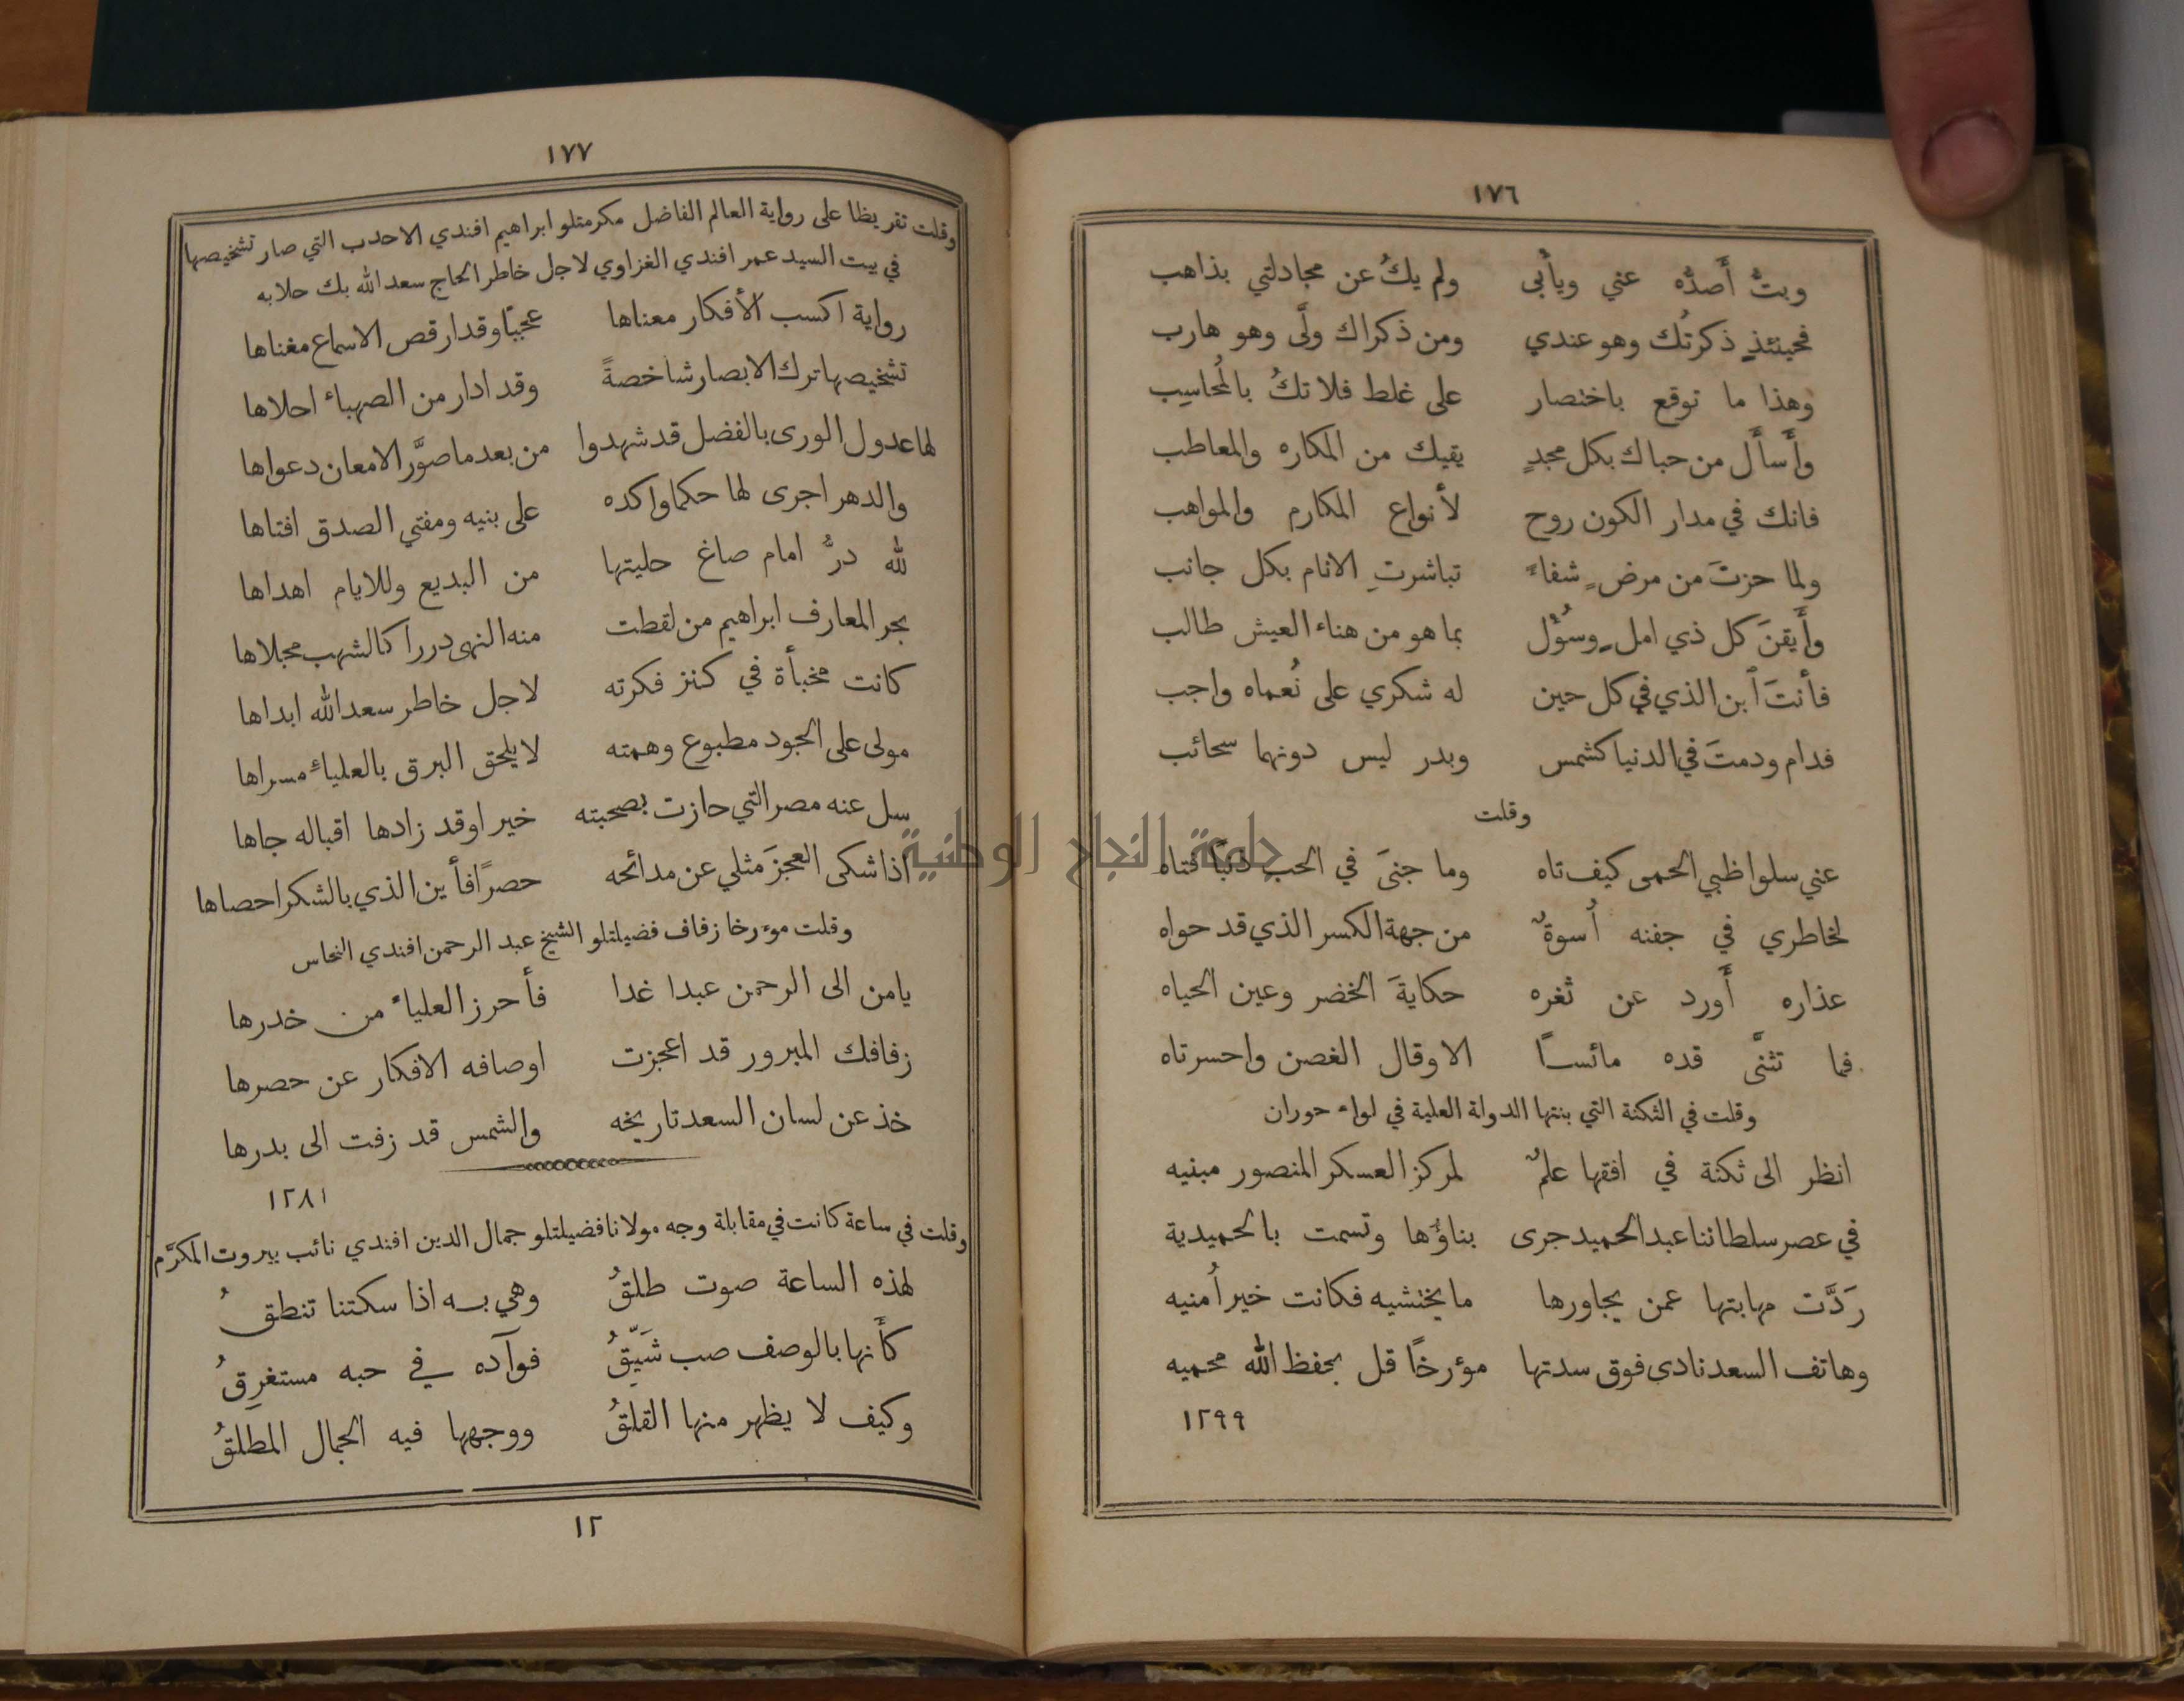 ١٧٦
وبتُّ أَصدُّه عني ويأْبى ولم يكُ عن مجادلتي بذاهب
فحينئذٍ ذكرتُك وهو عندي ومن ذكراك ولَّى وهو هارب
وهذا ما توقع باختصار على غلط فلا تكُ بالمُحاسِيب
وأَسأَل من حباك بكل مجدٍ يقيك من المكاره والمعاطب
فانك في مدار الكون روح لأنواع المكارم والمواهب
ولما حزتَ من مرضٍ شفاءً تباشرتِ الانام بكل جانب
وأَيقنَ كل ذي املٍ وسُؤْل بما هو من هناء العيش طالب
فأنتَ ٱبن الذي في كل حين له شكري على نُعماه واجب
فدام ودمتَ في الدنيا كشمس وبدر ليس دونهما سحائب
وقلت
عني سلوا ظبي الحمى كيف تاه وما جنىَ في الحب ذنبًا فتاه
لخاطري في جفنه أُسوةٌ من جهة الكسر الذي قد حواه
عذاره أَورد عن ثغره حكايةَ الخضر وعين الحياه
فما تثنَّى قده مائسًا الا وقال الغصن واحسرتاه
وقلت في الثكنة التي بنتها الدولة العلية في لواء حوران
انظر الى ثكنة في افقها علمٌ لمركز العسكر المنصور مبنيه
في عصر سلطاننا عبد الحميد جرى بناؤُها وتسمت بالحميدية
رَدَّت مهابتها عمن يجاورها ما يختشيه فكانت خير أُمنيه
وهاتف السعد نادى فوق سدتها مؤرخًا قل بحفظ الله محميه
١٢٩٩
١٧٧
وقلت تقريظا على رواية العالم الفاضل مكرمتلو ابراهيم افندي الاحدب التي صار تشخيصها
في بيت السيد عمر افندي الغزاوي لاجل خاطر الحاج سعد الله بك حلابه
رواية اكسب الأفكار معناها عجبًا وقد ارقص الاسماع مغناها
تشخيصها ترك الابصار شاخصةً وقد ادار من الصهباء احلاها
لها عدول الورى بالفضل قد شهدوا من بعد ما صوَّر الامعان دعواها
والدهر اجرى لها حكما واكده على بنيه ومفتي الصدق افتاها
لله درُّ امام صاغ حليتها من البديع وللايام اهداها
بحر المعارف ابراهيم من لقطت منه النهى دررا كالشهب مجلاها
كانت مخبأة في كنز فكرته لاجل خاطر سعد الله ابداها
مولى على الجود مطبوع وهمته لا يلحق البرق بالعلياءِ مسراها
سل عنه مصر التي حازت بصحبته خيرا وقد زادها اقباله جاها
اذا شكى العجزَ مثلي عن مدائحه حصرًا فأين الذي بالشكر احصاها
وقلت موءرخا زفاف فضيلتلو الشيخ عبد الرحمن افندي النحاس
يا من الى الرحمن عبدا غدا فأحرز العلياءَ من خدرها
زفافك المبرور قد اعجزت اوصافه الافكار عن حصرها
خذ عن لسان السعد تاريخه والشمس قد زفت الى بدرها
١٢٨١
وقلت في ساعة كانت في مقابلة وجه مولانا فضيلتلو جمال الدين افندي نائب بيروت المكرَّم
لهذه الساعة صوت طلقُ وهي به اذا سكتنا تنطقُ
كأَنها بالوصف صب شَيّقُ فوآده في حبه مستغرِقُ
وكيف لا يظهر منها القلقُ ووجهها فيه الجمال المطلقُ
١٢
جامعة النجاح الوطنية